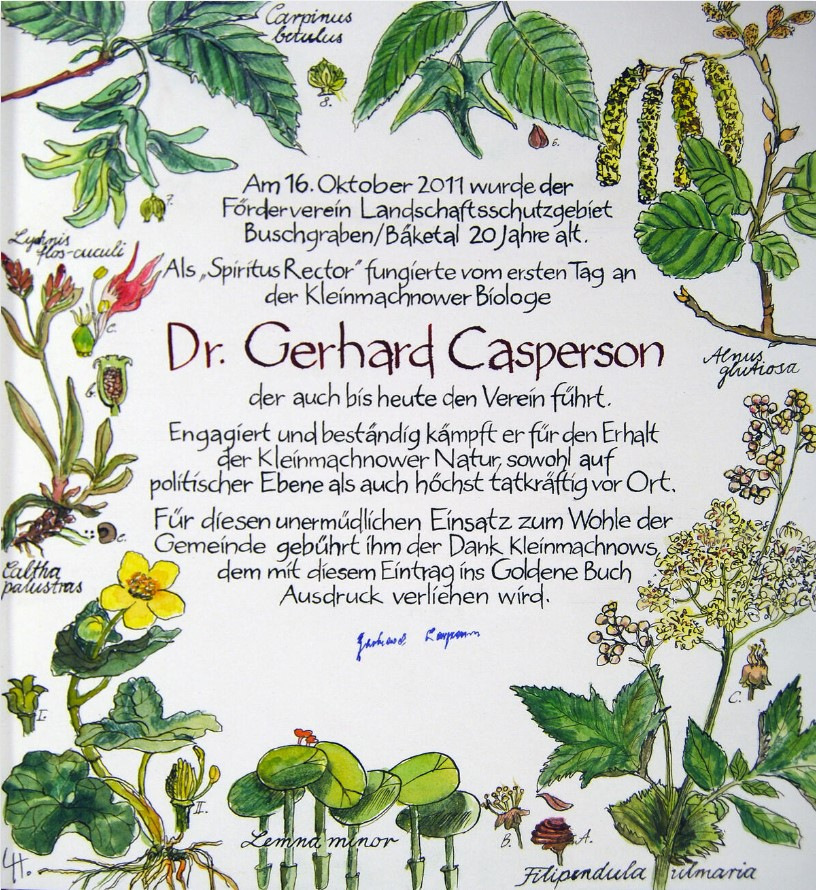 Carpinus
betulus
8.
6.
7.
Am 16. Oktober 2011 wurde der
Förderverein Landschaftsschutzgebiet
Buschgraben/Bäketal 20 Jahre alt.
Lychnis
flos-cuculi
Als „Spiritus Rector" fungierte vom ersten Tag an
der Kleinmachnower Biologe
Dr. Gerhard Casperson
c.
Alnus
glutiosa
b.
der auch bis heute den Verein führt.
Engagiert und beständig kämpft er für den Erhalt
der Kleinmachnower Natur, sowohl auf
politischer Ebene als auch höchst tatkräftig vor Ort.
Für diesen unermüdlichen Einsatz zum Wohle der
Gemeinde gebührt ihm der Dank Kleinmachnows,
dem mit diesem Eintrag ins Goldene Buch
Ausdruck verliehen wird.
c.
Caltha
palustras
Gerhard Casperson
C.
I.
II.
Lemna minor
B.
A.
LH.
Filipendula ulmaria